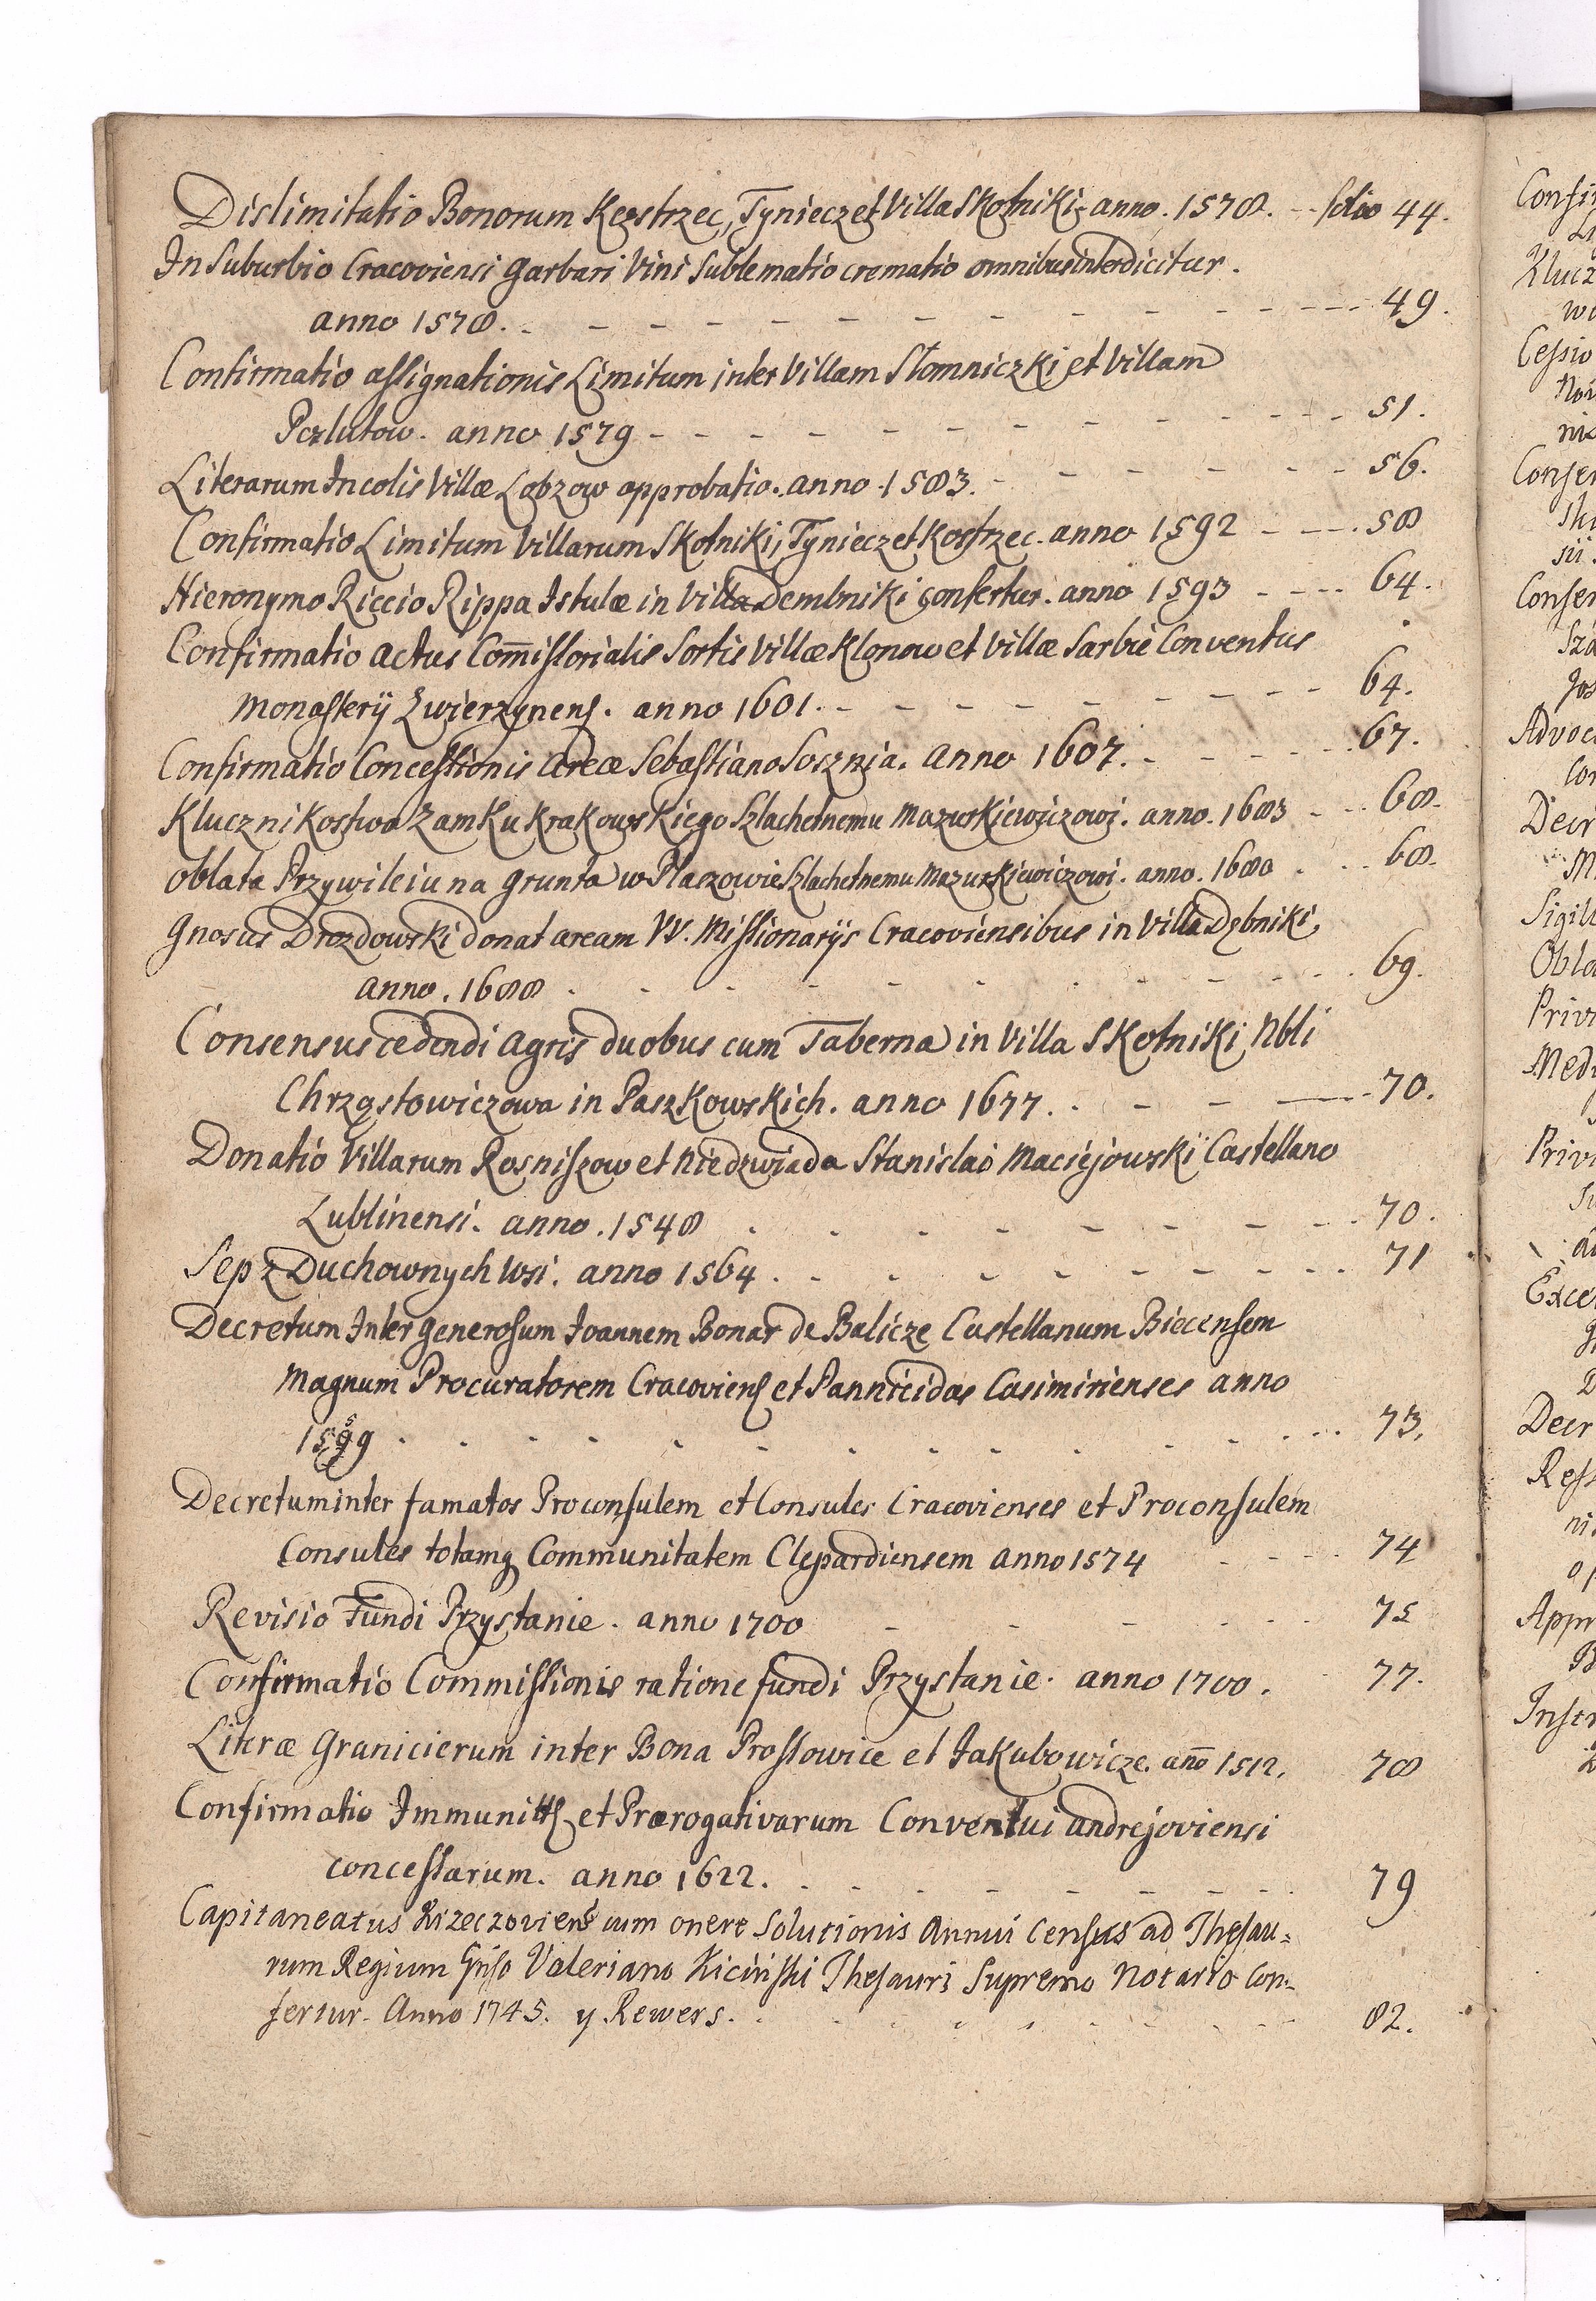 Dislimitatio Bonorum Kostrzec, Tyniec et Villa Skotniki anno. 1578. - - folio 44.
In Suburbio Cracoviensi Garbari Vini Sublematio crematio omnibus interdicitur.
anno 1578. - - - - - - - - - - - - - 49.
Confirmatio assignationis Limitum inter Villam Słomniczki et Villam
Pczlutow. anno 1579 - - - - - - - - - - - - 51.
Literarum Incolis Villæ Lobzow approbatio. anno. 1583. - - - - - - 56.
Confirmatio Limitum Villarum Skotniki, Tyniec et Kostrzec. anno 1592 - - - - 58
Hieronymo Riccio Rippa Istulæ in Villa Dembniki confertur. anno 1593 - - - - 64.
Confirmatio actus Com̄issorialis Sortis Villæ Klonow et Villæ Sarbie Conventus
Monasterij Zwierzynens. anno 1601. - - - - - - - - - 64.
Confirmatio Concessionis areæ Sebastiano Socznia. anno 1607. - - - - - 67.
Klucznikostwo Zamku Krakowskiego Szlachetnemu Mazurkiewiczowi. anno. 1683 - - - 68.
oblata Przywileiu na grunta w Płaszowie Szlachetnemu Mazurkiewiczowi. anno. 1680 . . . 68.
Gnosus Drozdowski donat aream VV. Missionarijs Cracoviensibus in Villa Dębniki,
anno. 1688 . - - - - - - - - - 69.
Consensus cedendi agris duobus cum Taberna in Villa Skotniki Nbli
Chrząstowiczowa in Paszkowskich. anno 1677. . - - - 70.
Donatio Villarum Rosniszow et Niedzwiada Stanislao Maciejowski Castellano
Lublinensi. anno. 1548 . - - - - - - - 70.
Sep z Duchownych Wsi. anno 1564. - - - - - - - - - 71
Decretum Inter Generosum Joannem Bonar de Balicze Castellanum Biecensem
Magnum Procuratorem Cracoviens et Pannicidas Casimirienses anno
1559 . - - - - - - - - - - - . . . 73.
Decretum inter famatos Proconsulem et Consules Cracovienses et Proconsulem
Consules totamq Communitatem Clepardiensem anno 1574 - - - - 74
Revisio Fundi Przystanie. anno 1700 - - - - - - 75
Confirmatio Commissionis ratione fundi Przystanie. anno 1700. - 77.
Literæ Granicierum inter Bona Prossowice et Jakubowicze. ano 1512. 78
Confirmatio Immunitts et Prærogativarum Conventui andrejoviensi
concessarum. anno 1622. . - - - - - - - - 79
Capitaneatus Rzeczoviens cum onere Solutionis Annui Census ad Thesau-
rum Regium Gnso Valeriano Kiciński Thesauri Supremo Notario con-
fertur. Anno 1745. y Rewers. . - - - - - - - 82.